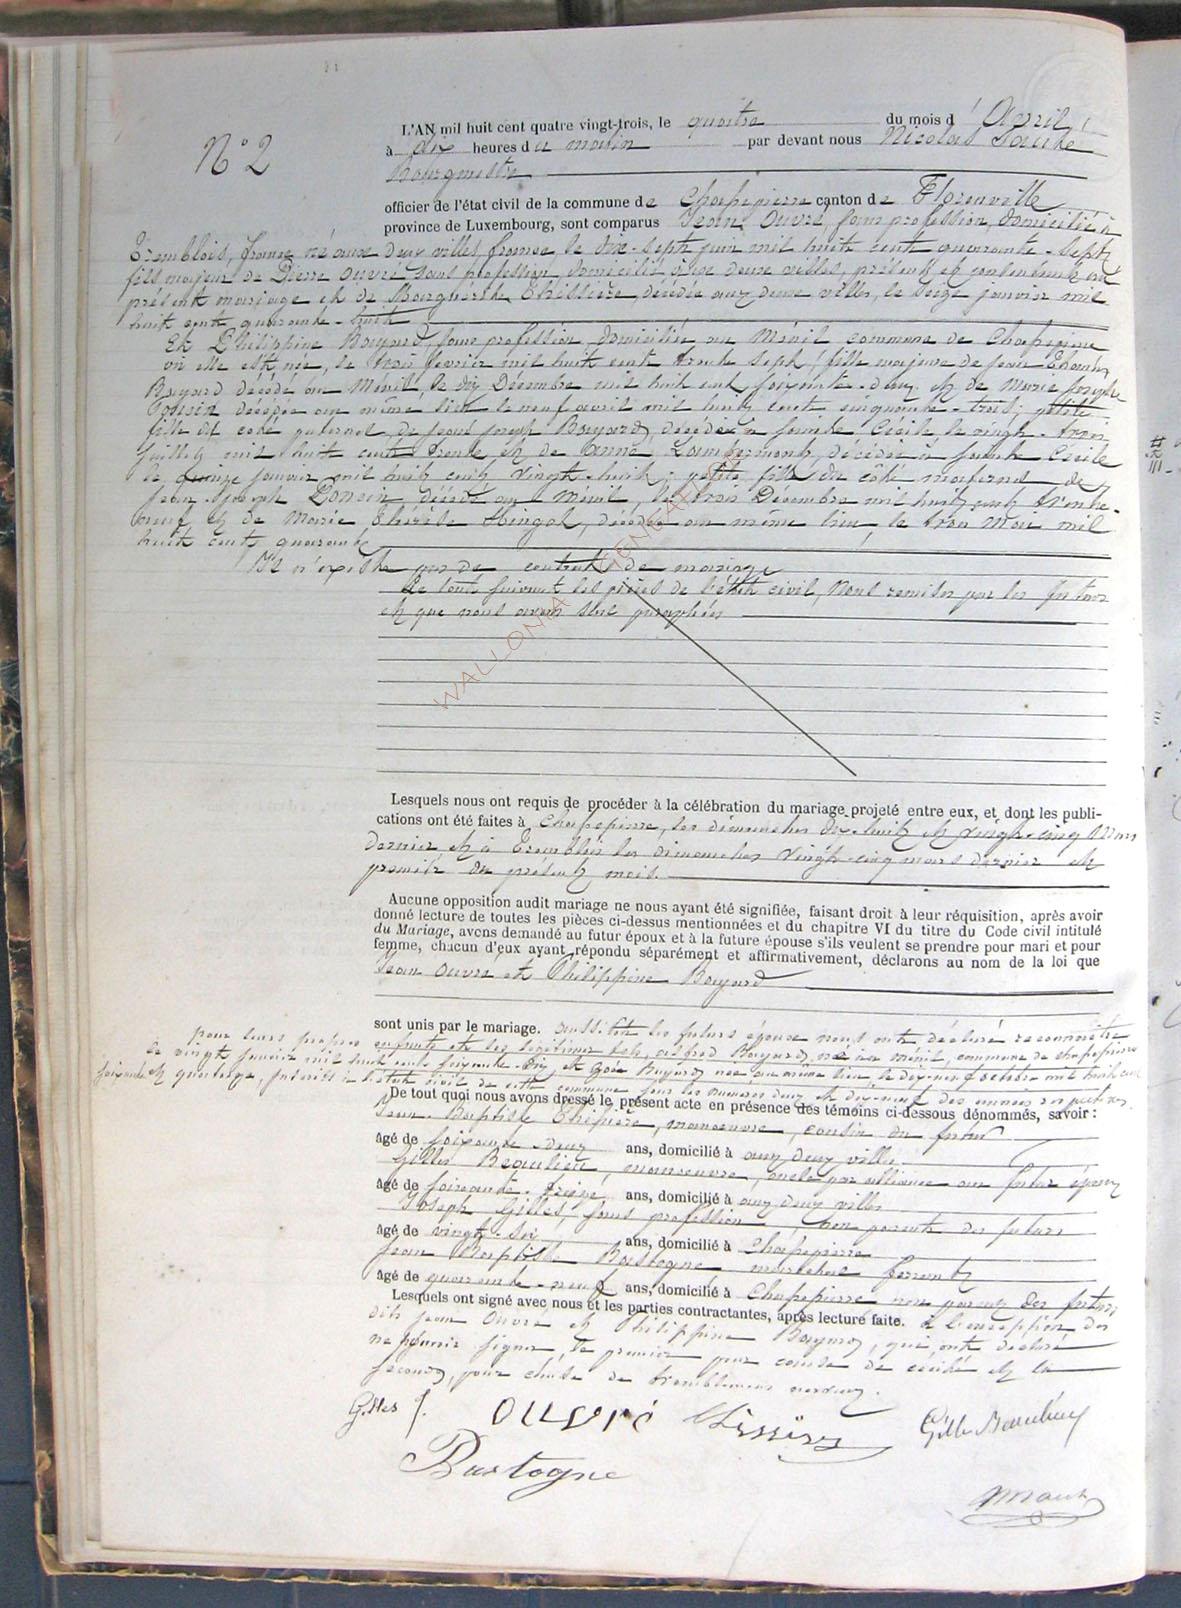 N° 2
L'AN mil huit cent quatre vingt-trois, le quatre du mois d'Avril
à dix heures du matin par devant nous Nicolas
Bourgmestre
officier de l'état civil de la commune de Chassepierre canton de Florenville
province de Luxembourg, sont comparus Jean Ouvré, sans profession, domicilié à
Tremblois, france né aux deux villes france, le dix-sept juin mil huit cent quarante-sept
fils majeur de Pierre Ouvré sans profession, domicilié aux deux villes, présent et consentant au
présent mariage et de Marguerite Thissière, décédée aux deux villes, le seize janvier mil
huit cent quarante-huit
Et Philippine Bayard, sans profession, domiciliée au Ménil commune de Chassepierre
où elle est née, le trois février mil huit cent trente sept, fille majeure de Jean Thomas
Bayard décédé au Ménil, le dix Décembre mil huit cent soixante-deux et de Marie Joseph
Ponsin décédée au même lieu le neuf avril mil huit cent cinquante-trois; petite
fille du coté paternel, de Jean Joseph Bayard, décédé à Sainte Cécile le vingt-trois
Juillet mil huit cent trente et de Anne Lambermont, décédée à Sainte Cécile
le quinze janvier mil huit cent vingt-huit; petite fille du côté maternel de
Jean-Joseph Ponsin, décédé au Ménil, le trois Décembre mil huit cent trente-
neuf et de Marie Thérèse Hingot, décédée au même lieu, le trois Mai mil
huit cent quarante
Il n'existe pas de contrat de mariage
Le tout suivant les pièces de l'état civil, Nous remises par les futurs
et que nous avons paraphées
WALLONIA GENEALOGIE
Lesquels nous ont requis de procéder à la célébration du mariage projeté entre eux, et dont les publi-
cations ont été faites à Chassepierre, les dimanches dix-huit et vingt-cinq Mars
dernier et à Tremblois les dimanches vingt-cinq mars dernier et
premier du présent mois.
Aucune opposition audit mariage ne nous ayant été signifiée, faisant droit à leur réquisition, après avoir
donné lecture de toutes les pièces ci-dessus mentionnées et du chapitre VI du titre du Code civil intitulé
du Mariage, avons demandé au futur époux et à la future épouse s'ils veulent se prendre pour mari et pour
femme, chacun d'eux ayant répondu séparément et affirmativement, déclarons au nom de la loi que
Jean Ouvré et Philippine Bayard
sont unis par le mariage. aussitôt les futurs époux nous ont déclaré reconnaître
pour leurs propres enfants et les légitimer tels, Alfred Bayard, né au Ménil, commune de Chassepierre
le vingt janvier mil huit cent soixante-dix et Zoé Bayard née au même lieu, le dix-neuf octobre mil huit cent
soixante et quatorze, inscrits à l'état civil de cette commune sous les numéros deux et dix-neuf des années respectives
De tout quoi nous avons dressé le présent acte en présence des témoins ci-dessous dénommés, savoir :
Jean-Baptiste Thissière, manoeuvre, cousin du futur
âgé de soixante-deux ans, domicilié à aux deux villes
Gilles Beaulieu, manoeuvre, oncle par alliance au futur époux
âgé de soixante-treize ans, domicilié à aux deux villes
Joseph Gilles, sans profession, non parent des futurs
âgé de vingt-six ans, domicilié à Chassepierre
Jean Baptiste Bastogne maréchal ferrant
âgé de quarante-neuf ans, domicilié à Chassepierre non parent des futurs
Lesquels ont signé avec nous et les parties contractantes, après lecture faite. à l'exception des
dits Jean Ouvré et Philippine Bayard, qui ont déclaré
ne pouvoir signer, le premier pour cause de cécité et la
seconde, pour cause de tremblement nerveux.
Gilles J. OUVRé Thissière Gille Beaulieu
Bastogne